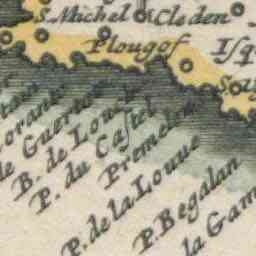 S. Michel
Cleden
Plougof
Isq
de Guerton
B. de Louc
P. du Castel
Premel
P. de la Louue
P. Begalan
la Gam